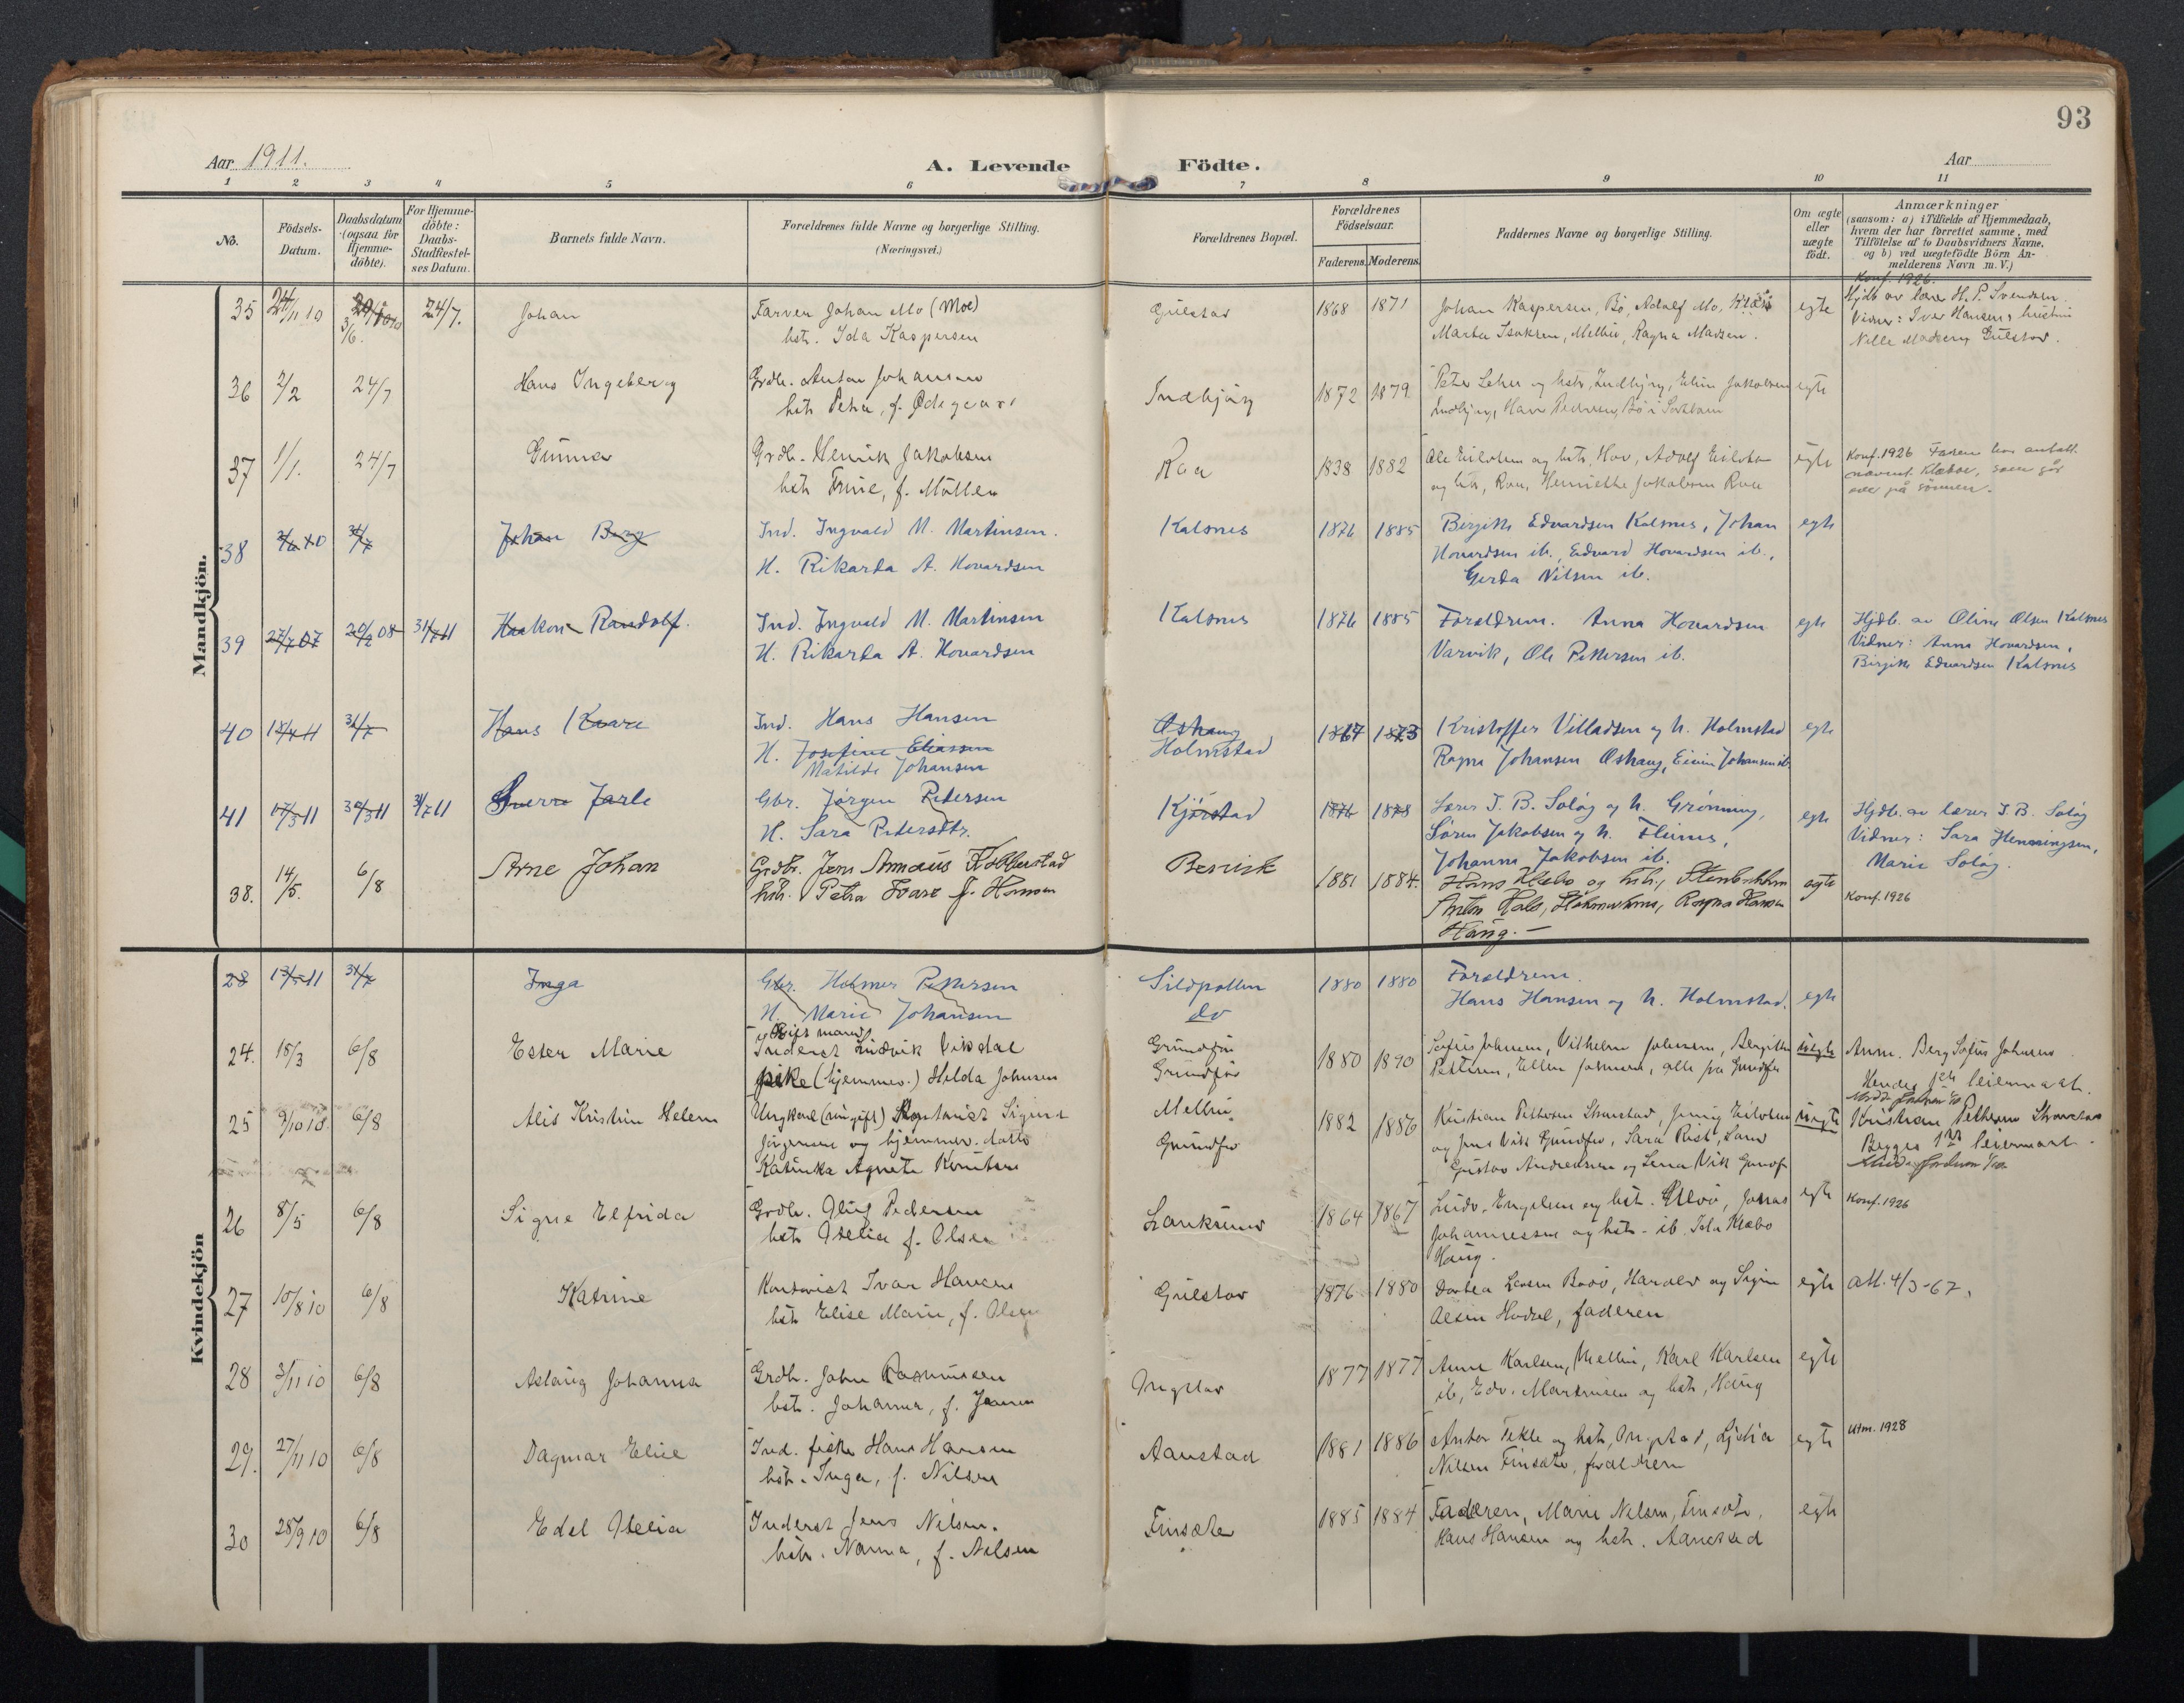 93
Aar 1911.
A. Levende Födte.
Aar
1 2 3 4 5 6 7 8 9 10 11
No.
Födsels-
Datum.
Daabsdatum
(ogsaa for
Hjemme-
döbte).
For Hjemme-
döbte:
Daabs-
Stadfæstel-
ses Datum.
Barnets fulde Navn.
Forældrenes fulde Navne og borgerlige Stilling.
(Næringsvei.)
Forældrenes Bopæl.
Forældrenes
Födselsaar.
Faderens. Moderens.
Faddernes Navne og borgerlige Stilling.
Om ægte
eller
uægte
födt.
Anmærkninger
(saasom: a) i Tilfælde af Hjemmedaab,
hvem der har forrettet samme, med
Tilföielse af to Daabsvidners Navne,
og b) ved uægtefödte Börn An-
melderens Navn m. V.)
Mandkjön.
Konf. 1926.
35 24/11 10 3/6. 24/7. Johan
Farver Johan Mo (Moe)
hst. Ida Kaspersen
Gulstad 1868 1871
Johan Kaspersen, Bö, Adolf Mo,
Marta Isaksen, Melbu, Ragna Madsen.
egte
Hjdb av lærer H. P. Svendsen.
Vidner: Iver Hansens hustru
Nelle Madsen, Gulstad.
36 2/2 24/7 Hans Ingeberg
Grdb. Anton Johansen
hst. Petra, f. Ödegaard
Indbjörg 1872 1879
egte
37 1/1. 24/7 Gunnar
Grdb. Henrik Jakobsen
hst. Trine, f. Möller
Roa 1838 1882
Ole Eilertsen og hst, Hov, Adolf Eilertsen
og hst, Roa, Henriette Jakobsen Roa
egte
Konf. 1926 Faren har antatt
navnet Klæboe, som går
over på sönnen.
38 31/7 Johan Berg
Ind. Ingvald M. Martinsen.
H. Rikarda A. Hovardsen
Kalsnes 1876 1885
Birgitte Edvardsen Kalsnes, Johan
Hovardsen ib., Edvard Hovardsen ib.,
Gerda Nilsen ib.
egte
39 27/7 07 20/2 08 31/7 11 Haakon Randolf.
Ind. Ingvald M. Martinsen
H. Rikarda A. Hovardsen
Kalsnes 1876 1885
Forældrene. Anna Hovardsen
Varvik, Ole Pettersen ib.
egte
Hjdb. av Oline Olsen Kalsnes
Vidner: Anna Hovardsen,
Birgitte Edvardsen Kalsnes
40 18/4 11 31/7 Hans Kaare
Ind. Hans Hansen
H. Josefine Eliassen
Matilde Johansen
Oshaug
Holmstad
1867 1873
Kristoffer Villadsen og h. Holmstad
Ragna Johansen Oshaug, Einin Johansen ib.
egte
41 17/3 11 30/3 11 31/7 11 Sverre Jarle
Gbr. Jørgen Petersen
H. Sara Petersdtr.
Kjørstad 1876 1878
Lærer J. B. Soløy og h. Grønning,
Søren Jakobsen og h. Flunes,
Johanna Jakobsen ib.
egte
Hjdb. av lærer J. B. Soløy
Vidner: Sara Henningsen,
Marie Soløy.
38. 14/5. 6/8 Arne Johan
Grdbr. Jens Amdeus Kobberstad
hstr. Petra Tvare f. Hansen
Besvik 1881 1884.
Hans Klæbo og hstr,
Anton Hals, Ragna Hansen
Haug. —
egte
Konf. 1926
Kvindekjön
28 13/5 11 31/7 Inga
Gbr. Holmer Pettersen
H. Marie Johansen
Sildpollen
do
1880 1880
Forældrene.
Hans Hansen og h. Holmstad.
egte
24. 18/3 6/8 Ester Marie
Inderst Ludvik Vikdal
pike (hjemmev.) Hilda Johnsen
Grundfør
Grundfør
1880 1890
Sofus Johnsen, Vilhelm Johnsen, Bergitte
Pettersen, Ellen Johnsen, alle fra Grundfør
uegte
Anm. Berg Sofus Johnsen
Hendes 1ste leiermaal.
25 9/10 10 6/8 Alis Kristin Helene
Ungkarl (ungift) Kontorist Sigurd
Jörgensen og hjemmev. datter
Katinka Agnete Knutsen
Melbu
Grundfør
1882 1886
Kristian Pettersen Straustad, Jenny Eilertsen
og Jens Vik Grundfør, Sara Rist, Sand
Gustav Andreassen og Lena Vik Grundf
uegte
Kristian Pettersen
Begges 1ste leiermaal.
26 8/5 6/8 Signe Elfrida
Grdb. Oluf Pedersen
hst. Otelia f. Olsen
1864 1867
Ludv. Engelsen og hst. Jonas
Johannessen og hst. ib. Ida Klæbo
Haug.
egte Konf. 1926
27 10/8 10 6/8 Katrine
Ivar Hansen
hst. Elise Marie, f. Olsen
Gulstad 1876 1880
Dortea Larsen Bodö, Harald og Signe
Olsen Hadsel, faderen
egte att. 4/3-67.
28 3/11 10 6/8 Aslaug Johanna
Grdb. John Rasmussen
hst. Johanna, f. Jensen
Ongstad 1877 1877
Anne Karlsen, Melbu, Karl Karlsen
ib, Edv. Martinsen og hst, Haug
egte
29. 27/11 10 6/8 Dagmar Elise
Ind. fisker Hans Hansen
hst. Inga, f. Nilsen
Aanstad 1881 1886
Anton Tekle og hst, Ongstad, Lydia
Nilsen Finsæter, forældrene
egte Utm. 1928
30 28/9 10 6/8 Edel Otelia
Inderst Jens Nilsen.
hst. Nanna, f. Nilsen
Finsæter 1885 1884
Faderen, Marie Nilsen, Finsæter,
Hans Hansen og hst. Aanstad
egte